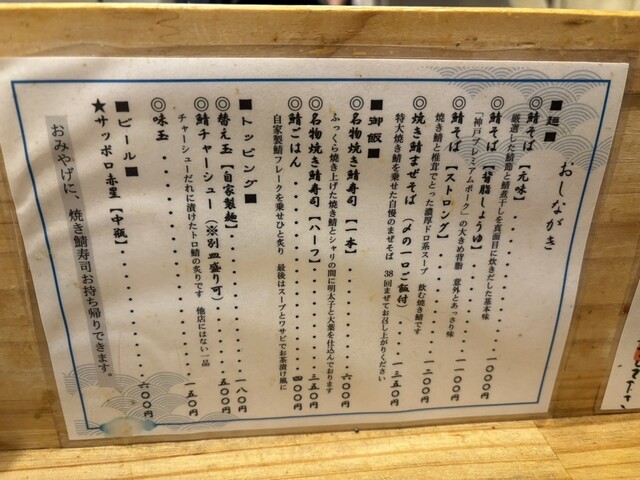 おしながき
■麺■
◎鯖そば【元味】・・・・・・・・一〇〇〇円
厳選した鯖節と鯖煮干しを真面目に炊きだした基本味
◎鯖そば【背脂しょうゆ】・・・・・一一〇〇円
「神戸プレミアムポーク」の大きめ背脂 意外とあっさり味
◎鯖そば【ストロング】・・・・・・一二〇〇円
焼き鯖と椎茸でとった濃厚ドロ系スープ 飲む焼き鯖です
◎焼き鯖まぜそば(〆の一口ご飯付)・・・一三五〇円
特大焼き鯖を乗せた自慢のまぜそば 38回まぜてお召し上がりください
■御飯■
◎名物焼き鯖寿司【一本】・・・・・・六〇〇円
ふっくら焼き上げた焼き鯖とシャリの間に明太子と大葉を仕込んでおります
◎名物焼き鯖寿司【ハーフ】・・・・・三五〇円
◎鯖ごはん・・・・・・・・・・四〇〇円
自家製鯖フレークを乗せひと炙り 最後はスープとワサビでお茶漬け風に
■トッピング■
◎替え玉【自家製麺】・・・・・・・一八〇円
◎鯖チャーシュー(※別皿盛り可)・・・五〇〇円
チャーシューだれに漬けたトロ鯖の炙りです 他店にはない一品
◎味玉・・・・・・・・・・・・一五〇円
■ビール■
★サッポロ赤星【中瓶】・・・・・・六〇〇円
おみやげに、焼き鯖寿司お持ち帰りできます。